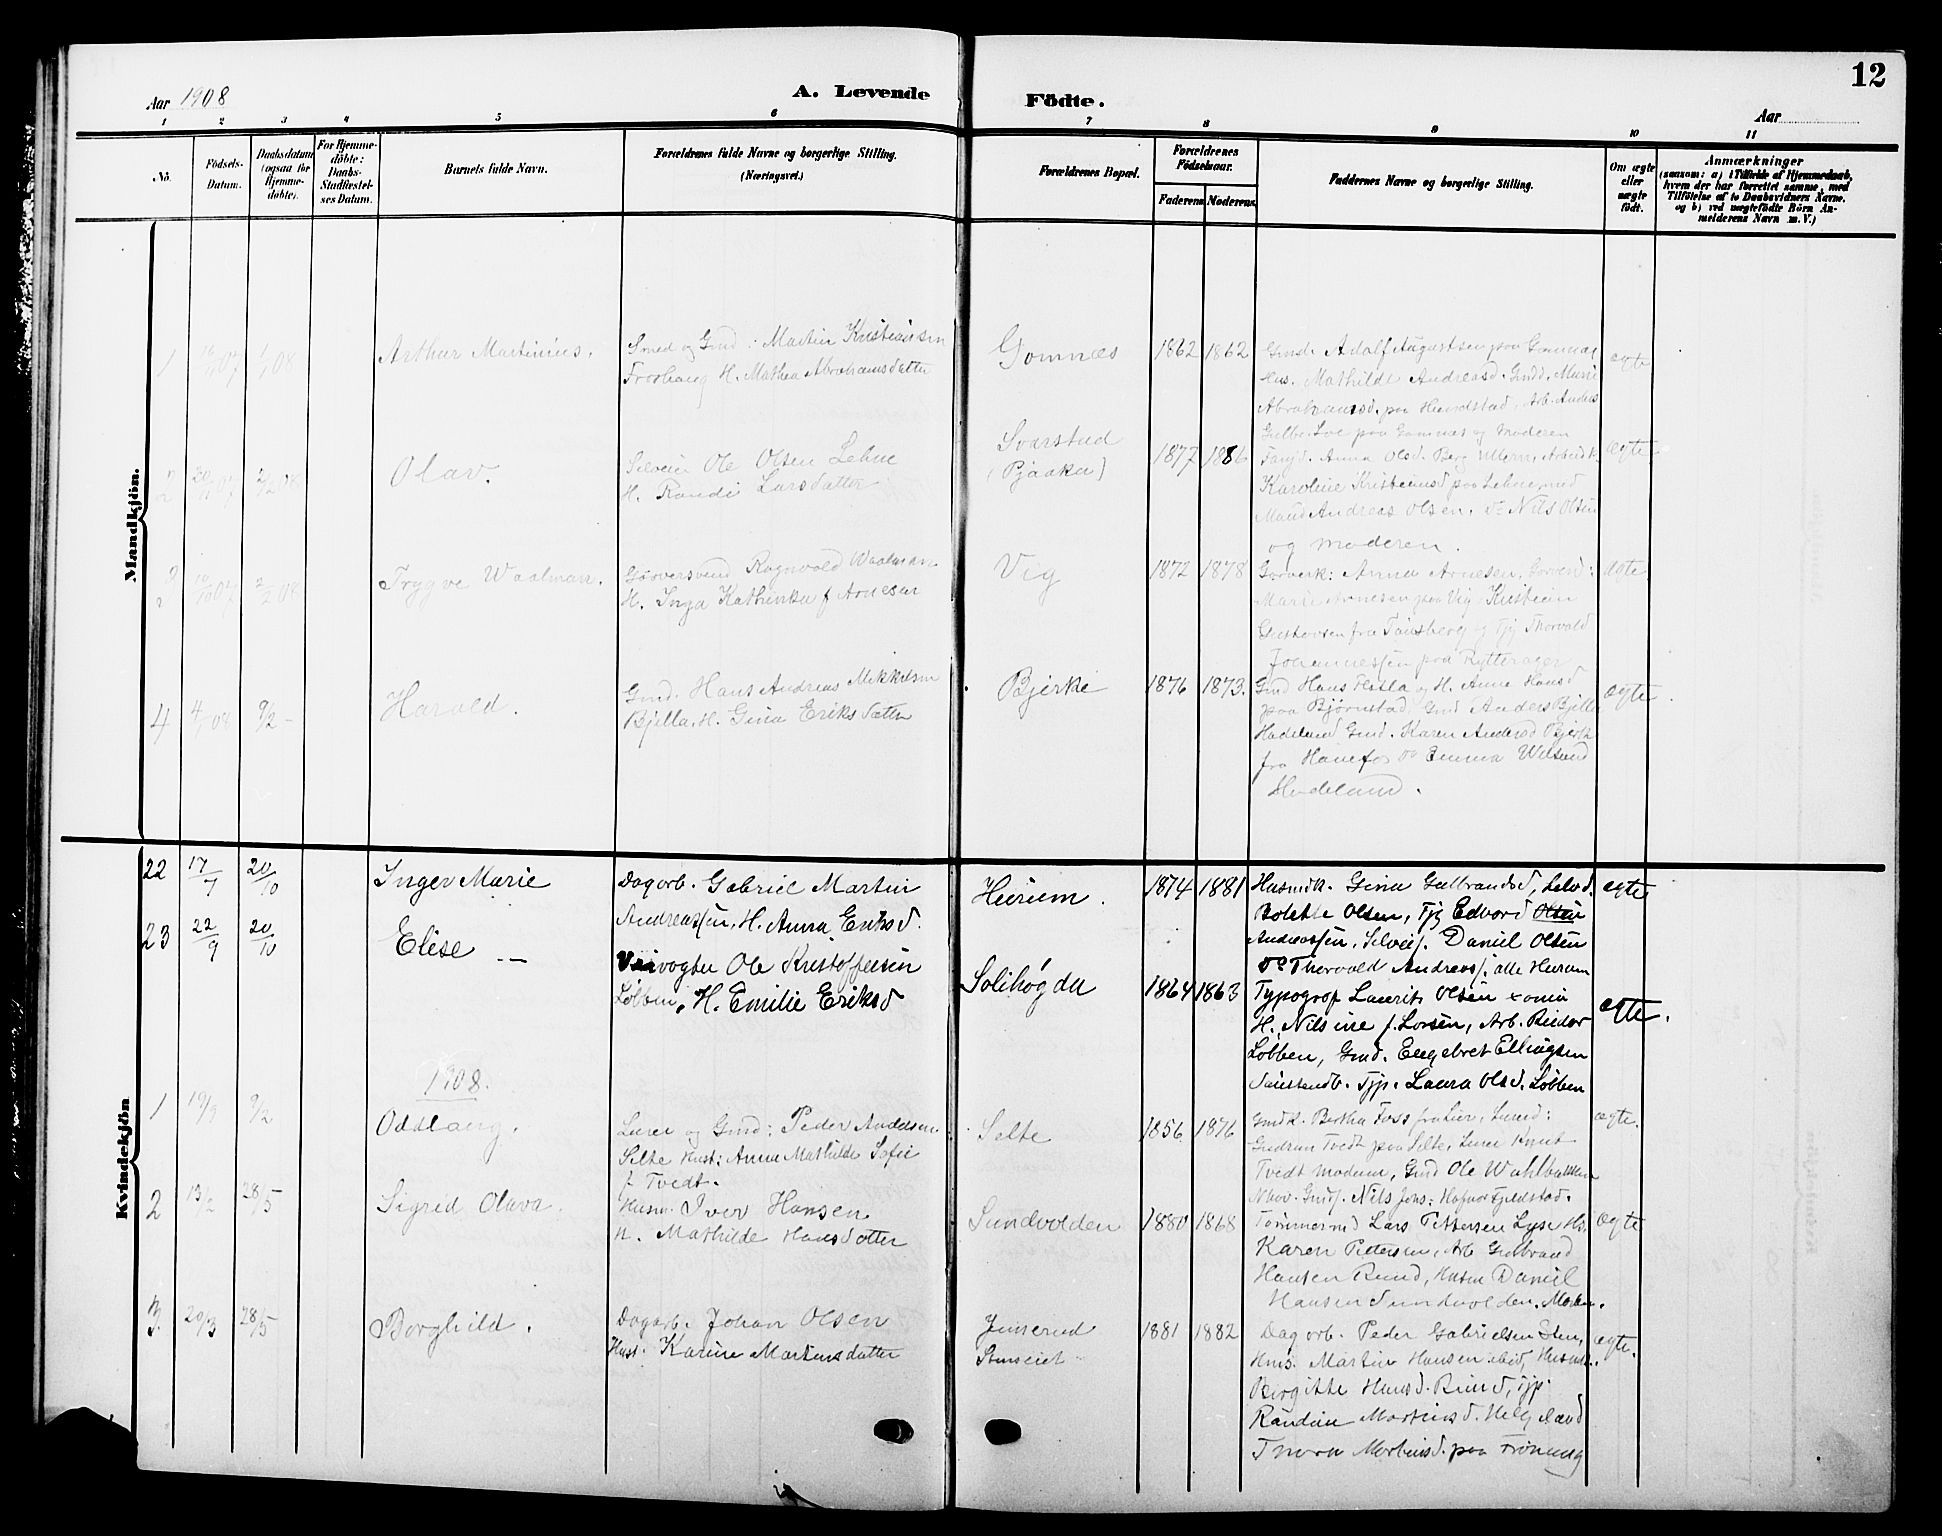 12
Aar 1908
A. Levende
Födte.
Aar
1 2 3 4 5 6 7 8 9 10 11
No.
Födsels-
Datum.
Daabsdatum
(ogsaa for
Hjemme-
döbte).
For Hjemme-
döbte:
Daabs-
Stadfæstel-
ses Datum.
Barnets fulde Navn.
Forældrenes fulde Navne og borgerlige Stilling.
(Næringsvei.)
Forældrenes Bopæl.
Forældrenes
Födselsaar.
Faderens
Moderens
Faddernes Navne og borgerlige Stilling.
Om ægte
eller
uægte
födt.
Anmærkninger
(saasom: a) i Tilfælde af Hjemmedaab,
hvem der har forrettet samme, med
Tilföielse af to Daabsvidners Navne,
og b) ved uægtefödte Börn An-
melderens Navn m. V.)
Mandkjön.
1
1/1 08
Arthur Martinius.
Smed og Gmd: Martin Kristiansen
Frorhaug H. Mathea Abrahamsdatter
Gomnæs
1862 1862
Gmd. Adolf Augustsen paa Gomnæs
Hus. Mathilde Andreasd. Gmdd. Marie
Abrahamsd. paa Hundstad, Arb. Anders
Gulbr. Loe paa Gomnæs og Moderen
ægte
2
20/11 07
2/2 08
Olav.
Selveier Ole Olsen Lehne
H. Randi Larsdatter
Svarstad
(Pjaaka)
1877 1886
Anna Olsd. Berg Ullern, Arbeidsk.
Karoline Kristiansd paa Lehne, med
Maud Andreas Olsen, do Nils Olsen
og moderen.
ægte
3
10/10 07
2/2 08
Trygve Waalman.
Garversvend Ragnvald Waalman
H. Inga Kathinka f Arnesen
Vig
1872 1878
Garverk: Anna Arnesen, Garvend:
Marie Arnesen paa Vig Kristian
Gustavsen fra Tönsberg og Tjg Thorvald
Johannessen paa Rytterager
ægte
4
4/1 08
9/2 -
Harald.
Gmd. Hans Andreas Mikkelsen
Bjella, H. Gina Eriksdatter
Bjerke
1876 1873.
Gmd Hans Hetla og H. Anne Hansd
paa Björnstad, Gmd Anders Bjella
Hadeland Gmd. Karen Andersd Bjerke
fra Hönefos do Emma
Hadeland.
ægte.
Kvindekjön
22
17/7
20/10
Inger Marie
Dagarb. Gabriel Martin
Andreassen, H. Anna Eriksd.
Hurum.
1874 1881
Husmdk. Gina Gulbrandsd, Selvd.
Bolette Olsen, Tjg Edvard Olsen
Andreassen, Selveif. Daniel Olsen
do Thorvald Andreass. alle Hurum
ægte
23
22/9
20/10
Elise —
Veivogter Ole Kristoffersen
Löbben, H. Emilie Eriksd
Solihögda
1864 1863
Typograf Laurits Olsen Xania
H. Nilsine f. Larsen, Arb. Reidar
Löbben, Gmd. Engebret Ellingsen
Tjp. Laura Olsd. Löbben
ægte.
1908.
1
19/9
9/2
Oddlaug.
Lærer og Gmd: Peder Andersen
Selte Hust: Anna Mathilde Sofie
f Tvedt.
Selte
1856 1876
Gmdk. Bertha Foss fra Lier, Lærerd:
Gudrun Tvedt paa Selte, Lærer Knut
Tvedt Modum, Gmd Ole
Gmds. Nils Johs: Hafnor Fjeldstad.
ægte.
2
13/2
28/5
Sigrid Olava.
Husm. Iver Hansen
H. Mathilde Hansdatter
Sundvolden
1880 1868
Tömmermd Lars Pettersen Lyse Hs.
Karen Pettersen, Arb Gulbrand
Hansen Rund, Husm Daniel
Hansen Sundvolden. Moderen.
ægte
3.
20/3
28/5
Borghild.
Dagarb. Johan Olsen
Hust. Karine Martinsdatter
Stenseiet
1881 1882
Dagarb. Peder Gabrielsen Sten,
Hus. Martin Hansen ibid, Husmk.
Birgitte Hansd. Rund, Tjp.
Randine Martinsd. Helgeland
Thora Martinsd. paa
ægte.